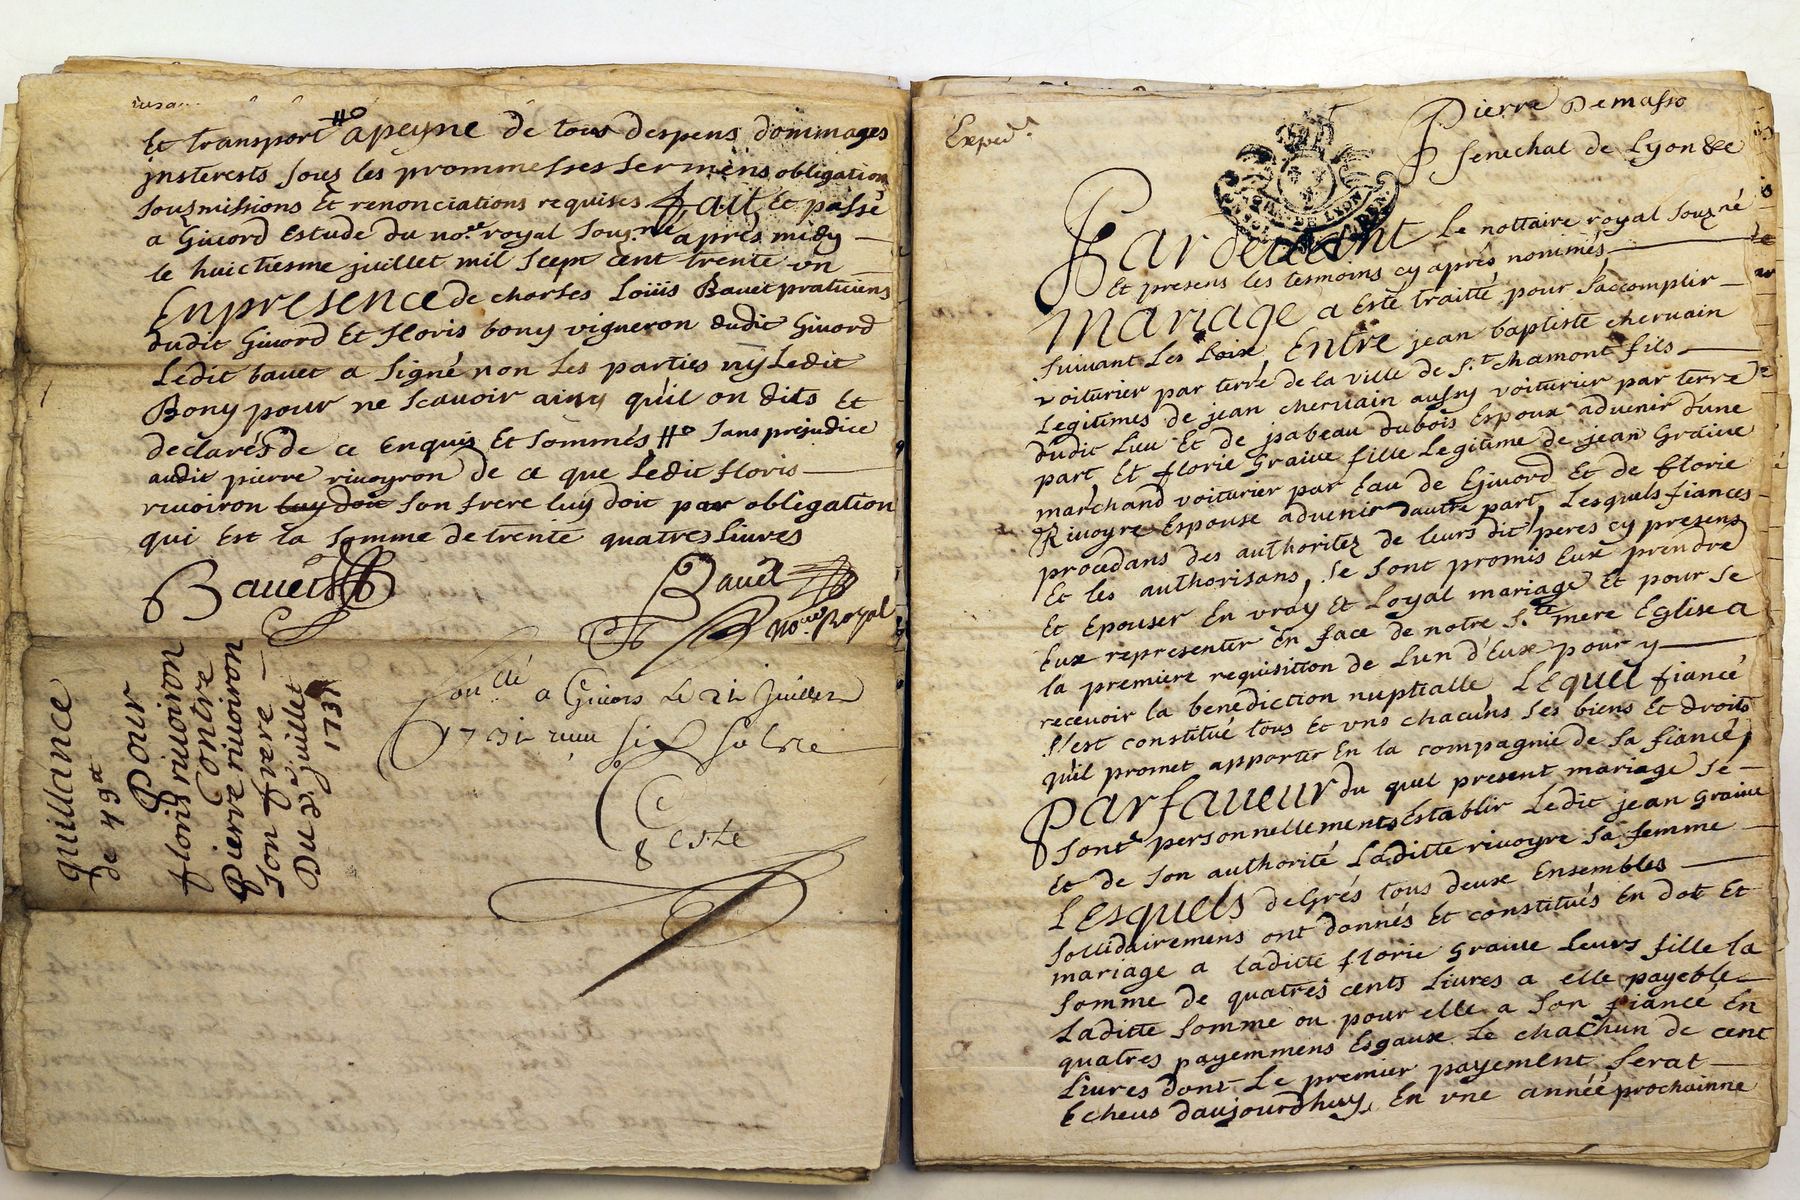 Et transport #o apeyne de tous despens dommages
jnsterests sous les prommesses sermens obligation
sousmissions Et renonciations requises Fait Et passé
a Givord Estude du no.re royal sousné apres midy
le huictiesme juillet mil scept cent trente un
En presence de charles Loüis Bavet praticiens
dudit Givord Et floris bony vigneron dudit Givord
Ledit bavet a signé non les parties ny Ledit
Bony pour ne scavoir ainsy qu'il on dits et
declarés de ce Enquis Et sommés #o sans prejudice
audit pierre rivoyron de ce que Ledit floris
rivoiron luy doit son frere luy doit par obligation
qui Est la somme de trente quatres Livres
Bavet
Bavet
no.re Royal
a Givors Le 21 Juillet
1731
Coste
quittance
de 49#
Pour
floris rivoiron
Contre
Pierre rivoiron
son frere
Du juillet
1731
Exped.
Pierre Demasso
senechal de Lyon &c
Pardevant Le nottaire royal sousné
Et presens les tesmoins cy aprés nommés
Mariage a Esté traitté pour s'accomplir
suivant Les Loix, Entre jean baptiste chervain
voiturier par terre de la ville de S.t chamont fils
Legitimes de jean chervain aussy voiturier par terre
dudit Lieu Et de jsabeau dubois Espoux advenir d'une
part, Et florie Graive fille Legitime de jean Graive
marchand voiturier par Eau de Givord Et de florie
Rivoyre Espouse advenir d'autre part, Lesquels fiances
procedans des authoritez de leurs dit peres cy presens
Et les authorisans, se sont promis Eux prendre
Et Epouser En vray Et Loyal mariage Et pour se
Eux representer En face de notre S.te mere Eglise a
la premiere requisition de Lun d'Eux pour y
recevoir la benediction nuptialle, Lequel fiancé
s'est constitué tous Et uns chacuns ses biens Et droits
qu'il promet apporter En la compagnie de sa fiancé,
Parfaveur du quel present mariage se
sont personnellements Establir Ledit jean Graive
Et de son authorité Laditte rivoyre sa femme
Lesquels de Grés tous deux Ensembles
sollidairemens ont donnés Et constitués En dot Et
mariage a laditte florie Graive Leurs fille la
somme de quatres cents Livres a elle payeble
Laditte somme ou pour elle a son fiancé En
quatres payemmens Esgaux Le chachun de cent
Livres dont Le premier payement serat
Echeus d'aujourdhuy, En une année prochainne